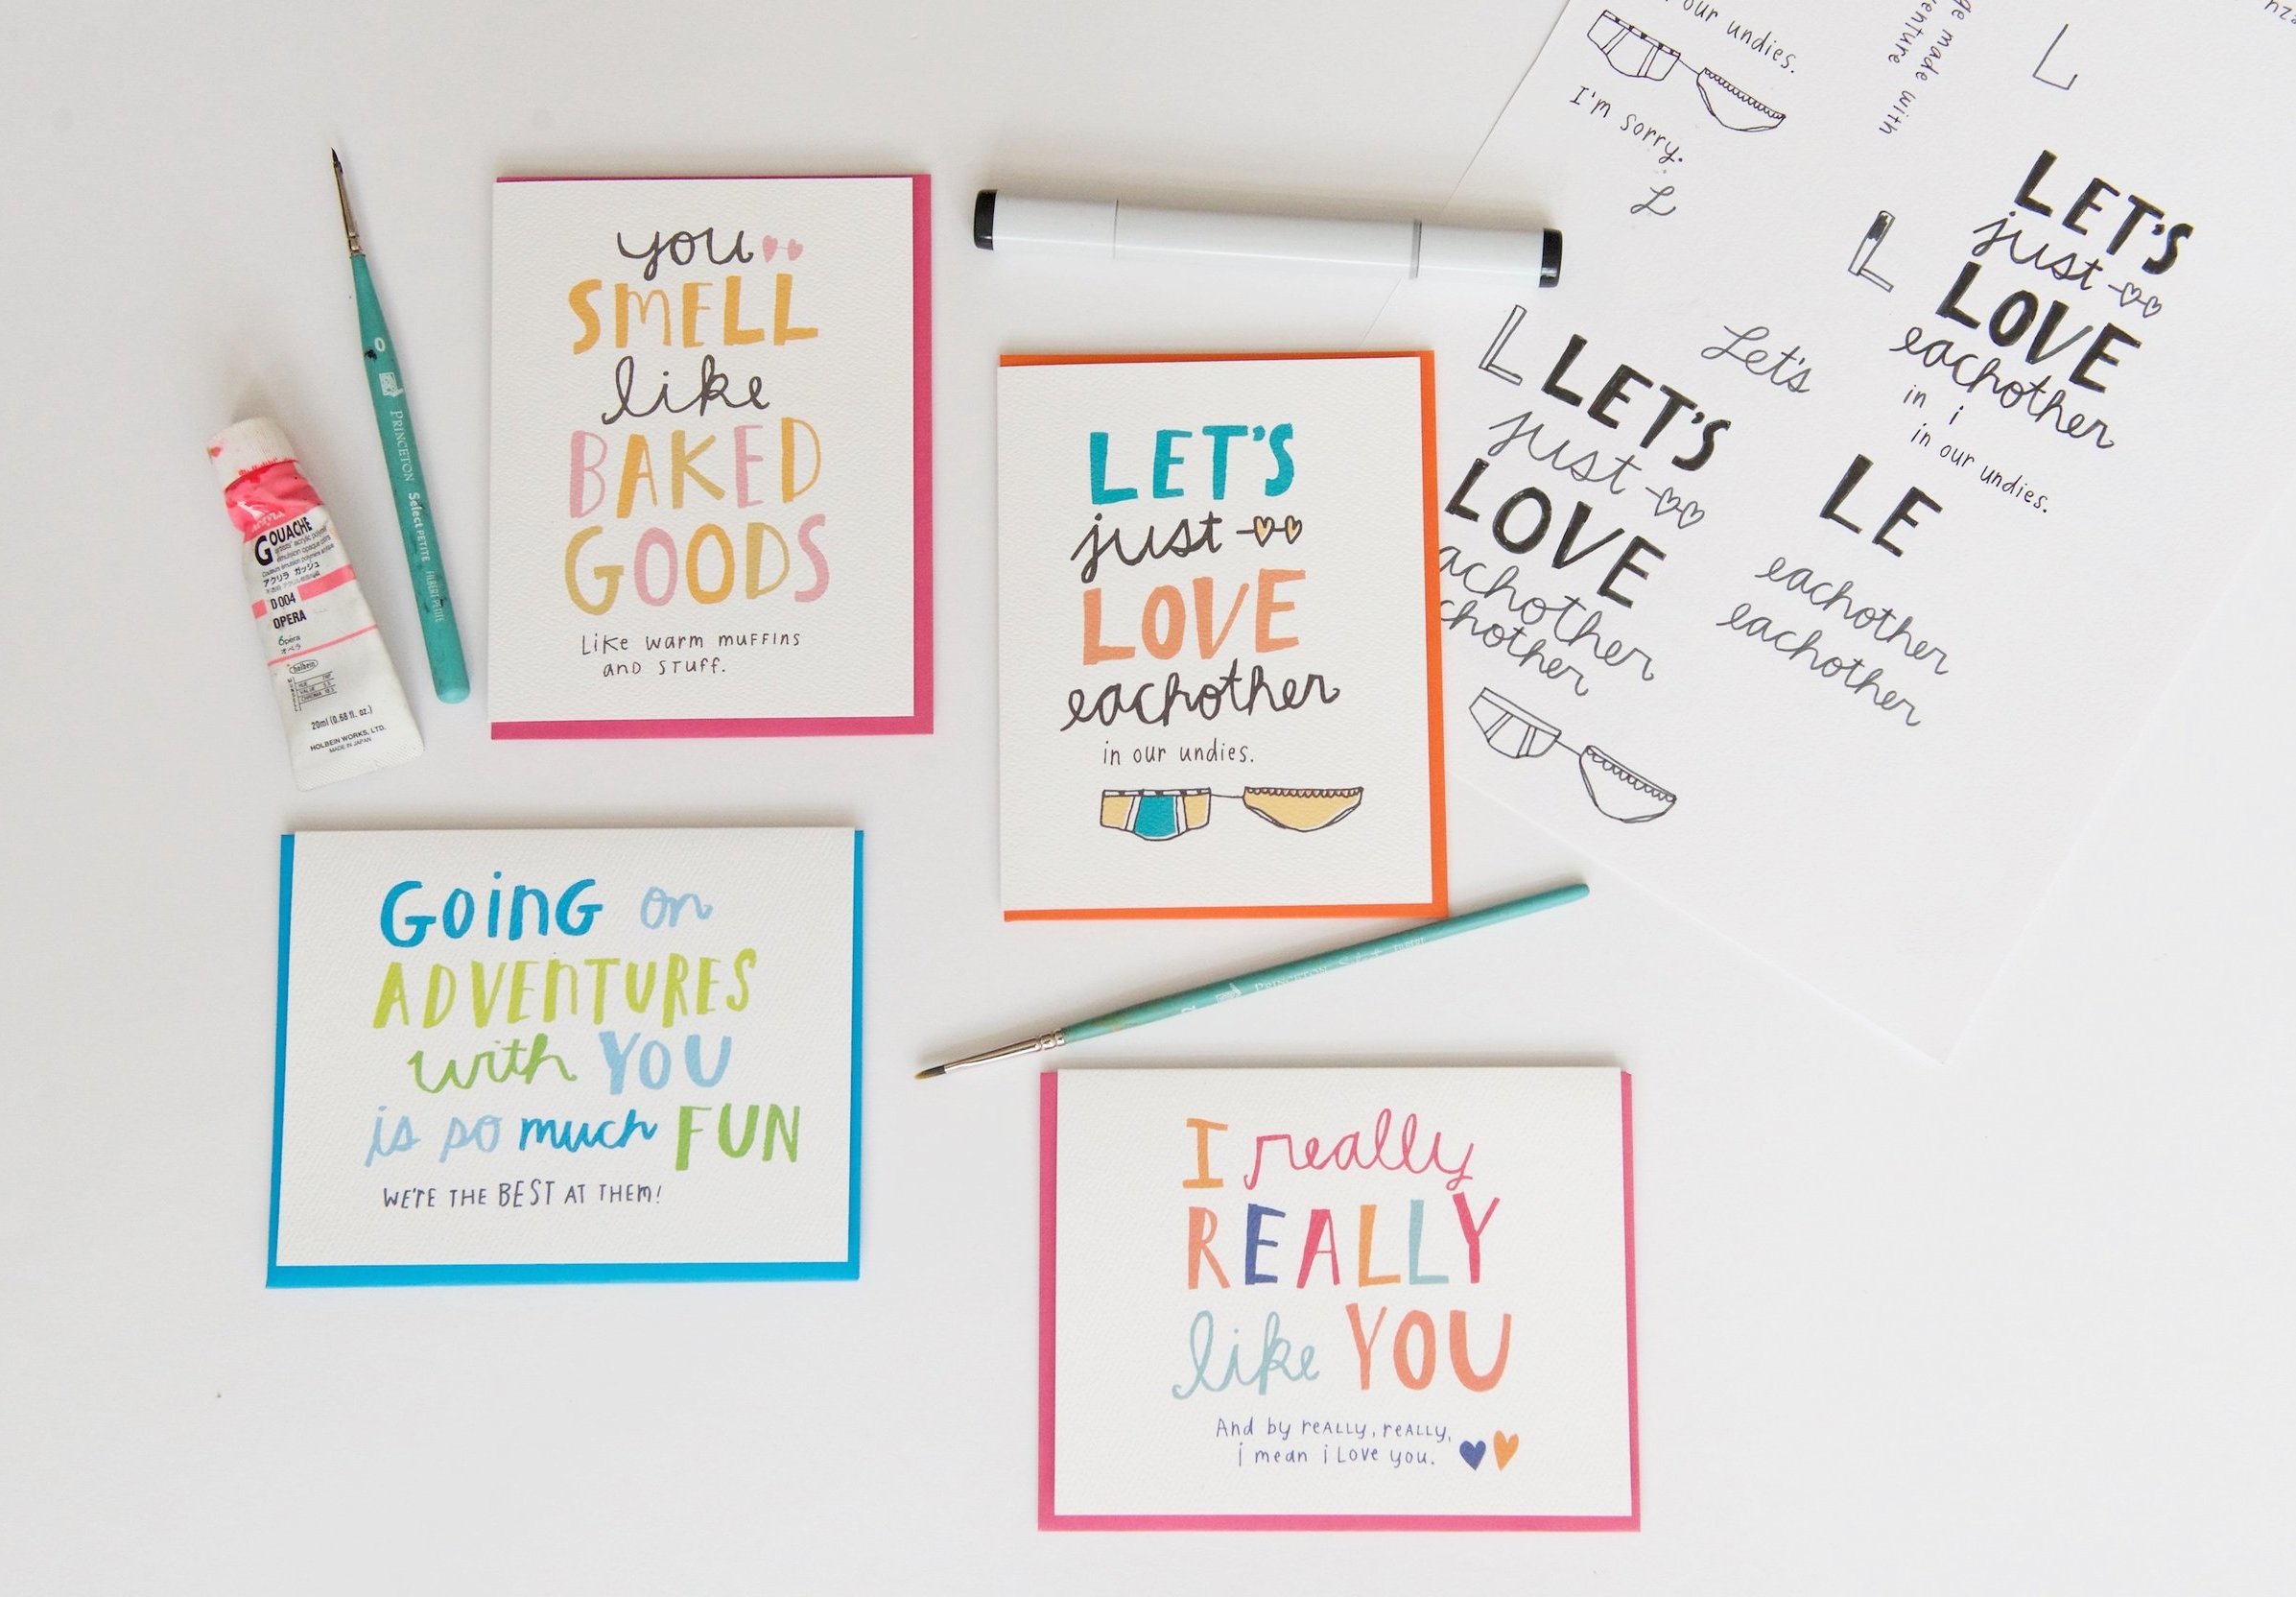 you
SMELL
like
BAKED
GOODS
Like warm muffins
and stuff.
LET'S
just
LOVE
eachother
in our undies.
GOING on
ADVENTURES
with YOU
is so much FUN
WE'RE THE BEST AT THEM!
I really
REALLY
like YOU
And by reALLy, reALLy,
i mean i Love you.
0
PRINCETON Select PETITE FILBERT PETITE
GOUACHE
アクリラ ガッシュ
D 004
OPERA
オペラ
holbein
20ml (0.68 fl. oz.)
HOLBEIN WORKS, LTD.
MADE IN JAPAN
PRINCETON Select
our undies.
I'm sorry.
L
made with
venture
L
L
LET'S
just
LOVE
eachother
in i
in our undies.
L
Let's
LET'S
just
LOVE
achother
chother
LE
eachother
eachother